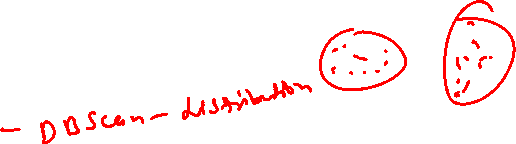 - DBScan - distribution